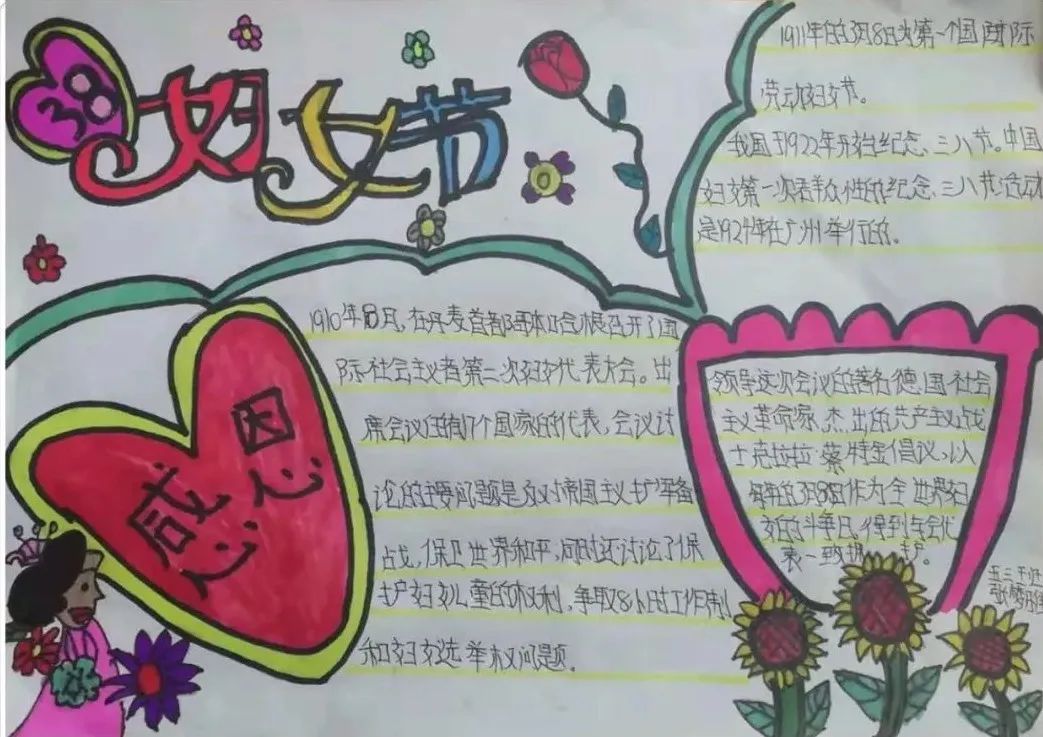 38
妇女节
1911年的3月8日为第一个国际
劳动妇女节。
我国于1922年开始纪念、三八节。中国
妇女第一次群众性的纪念、三八节活动
是1924年在广州举行的。
感恩
1910年8月,在丹麦首都哥本哈根召开了国
际社会主义者第二次妇女代表大会。出
席会议的有17个国家的代表,会议讨
论的主要问题是反对帝国主义扩军备
战,保卫世界和平,同时还讨论了保
护妇女儿童的权利,争取8小时工作制
和妇女选举权问题。
领导这次会议的著名德、国社会
主义革命家、杰出的共产主义战
士克拉拉·蔡特金倡议,以
每年的3月8日作为全世界妇
女的斗争日,得到与会代
表一致拥护。
五三班